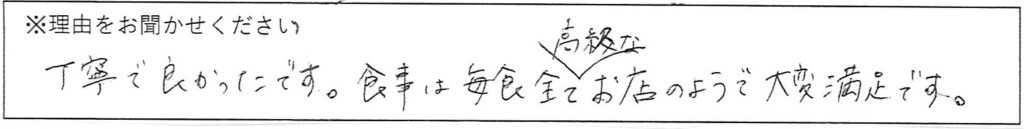 ※理由をお聞かせください
丁寧で良かったです。食事は毎食全て高級なお店のようで大変満足です。